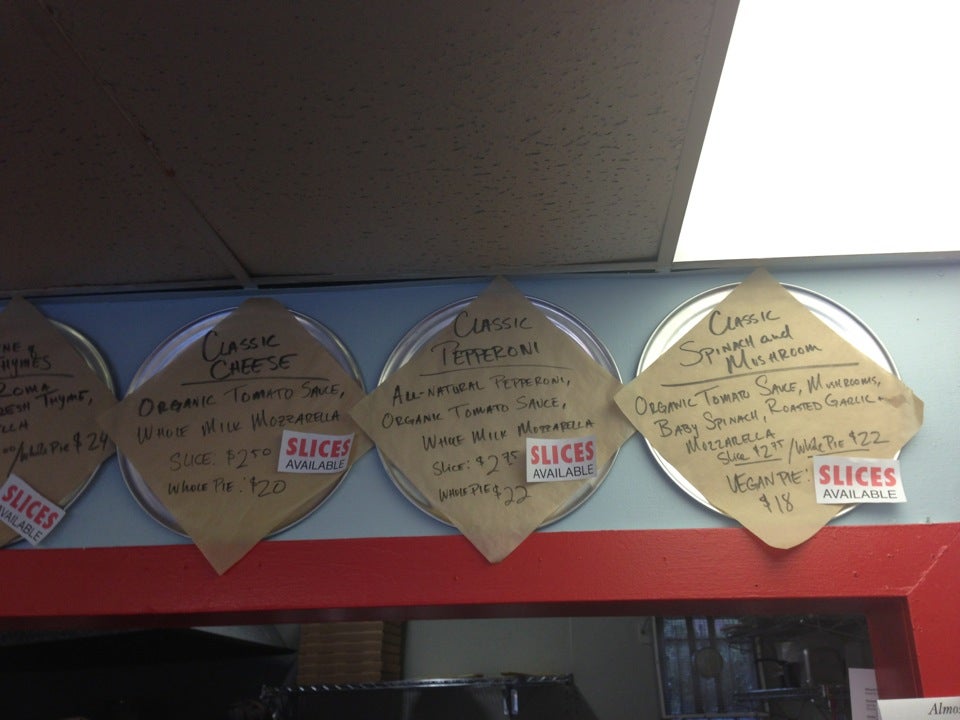 THYMES
ROMA
THYME,
Whole Pie $24
SLICES
AVAILABLE
CLASSIC
CHEESE
ORGANIC TOMATO SAUCE,
WHOLE MILK MOZZARELLA
SLICE: $2.50
WHOLE PIE: $20
SLICES
AVAILABLE
CLASSIC
PEPPERONI
ALL-NATURAL PEPPERONI,
ORGANIC TOMATO SAUCE,
WHOLE MILK MOZZARELLA
SLICE: $2.75
WHOLE PIE $22
SLICES
AVAILABLE
CLASSIC
SPINACH and
MUSHROOM
ORGANIC TOMATO SAUCE, MUSHROOMS,
BABY SPINACH, ROASTED GARLIC
MOZZARELLA
Slice $2.75 / Whole Pie $22
VEGAN PIE:
$18
SLICES
AVAILABLE